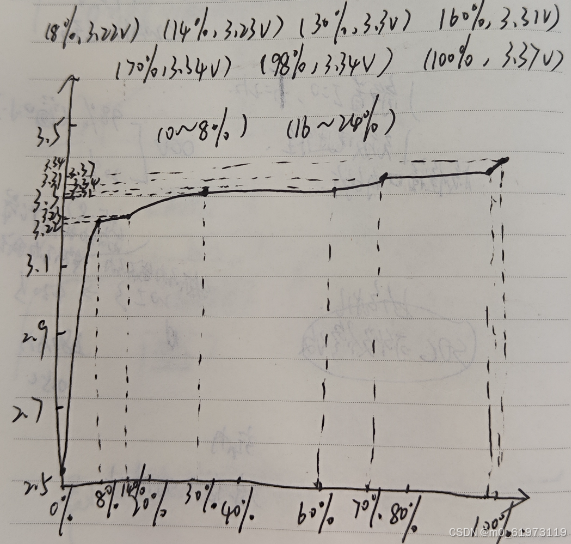 (8%, 3.22V) (14%, 3.23V) (30%, 3.3V) (60%, 3.31V)
(70%, 3.34V) (98%, 3.34V) (100%, 3.37V)
3.5
(0~8%) (16~24%)
3.37
3.34
3.31
3.3
3.23
3.22
3.1
2.9
2.7
2.5
0% 8% 14% 20% 30% 40% 60% 70% 80% 100%
CSDN @m0_61973119